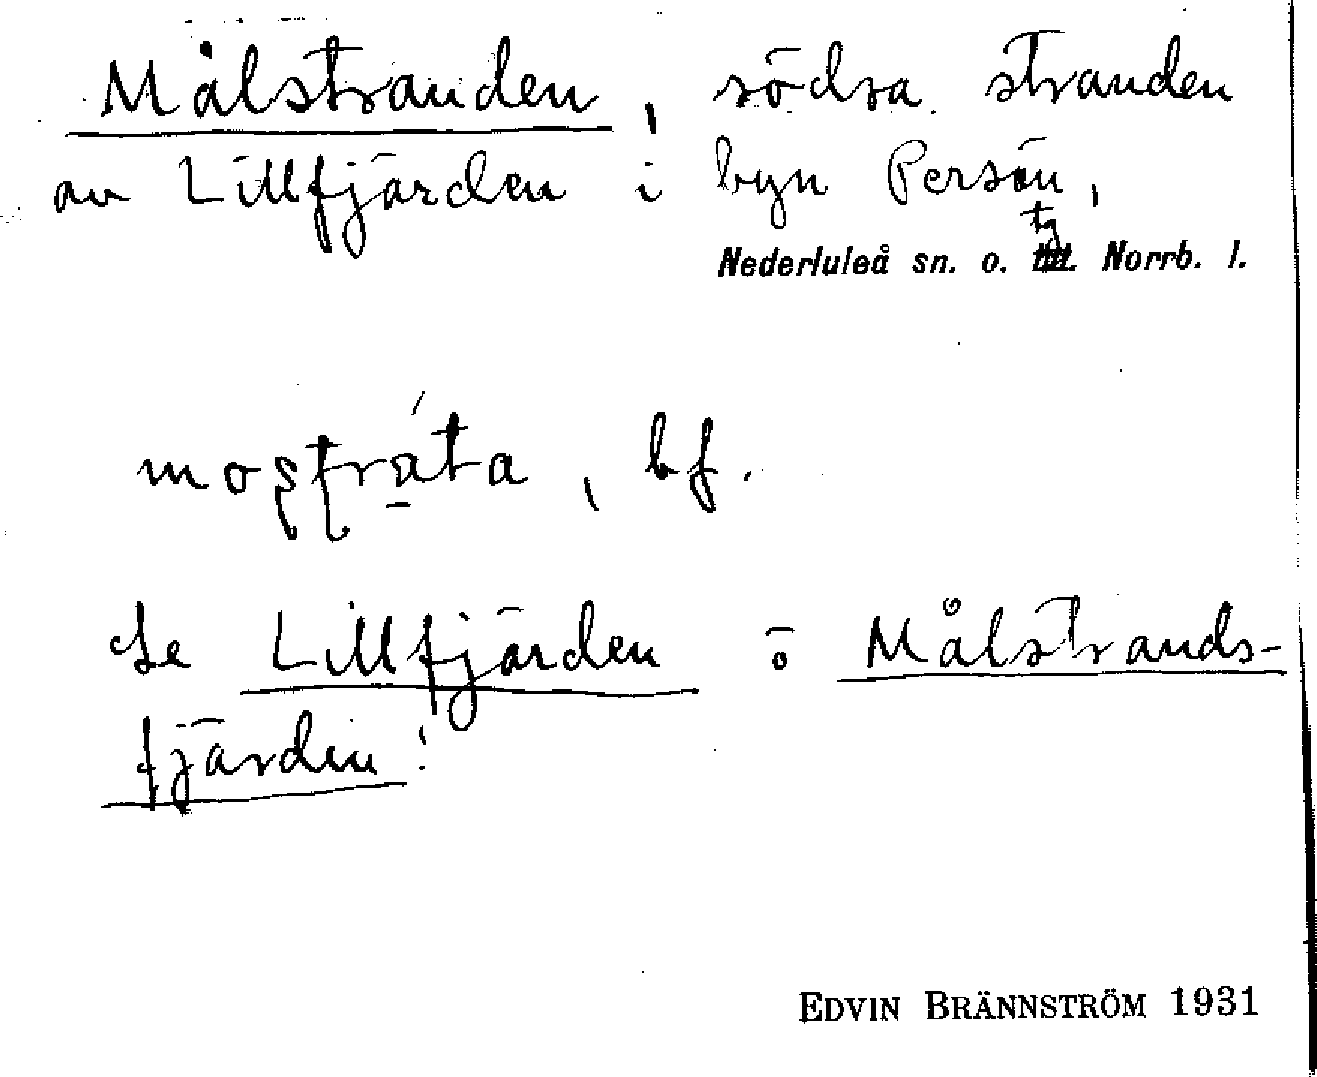 Målstranden, södra stranden
av Lillfjärden i byn Persön,
tg
Nederluleå sn. o. Norrb. l.
bf.
Se Lillfjärden o Målstrands-
fjärden!
EDVIN BRÄNNSTRÖM 1931